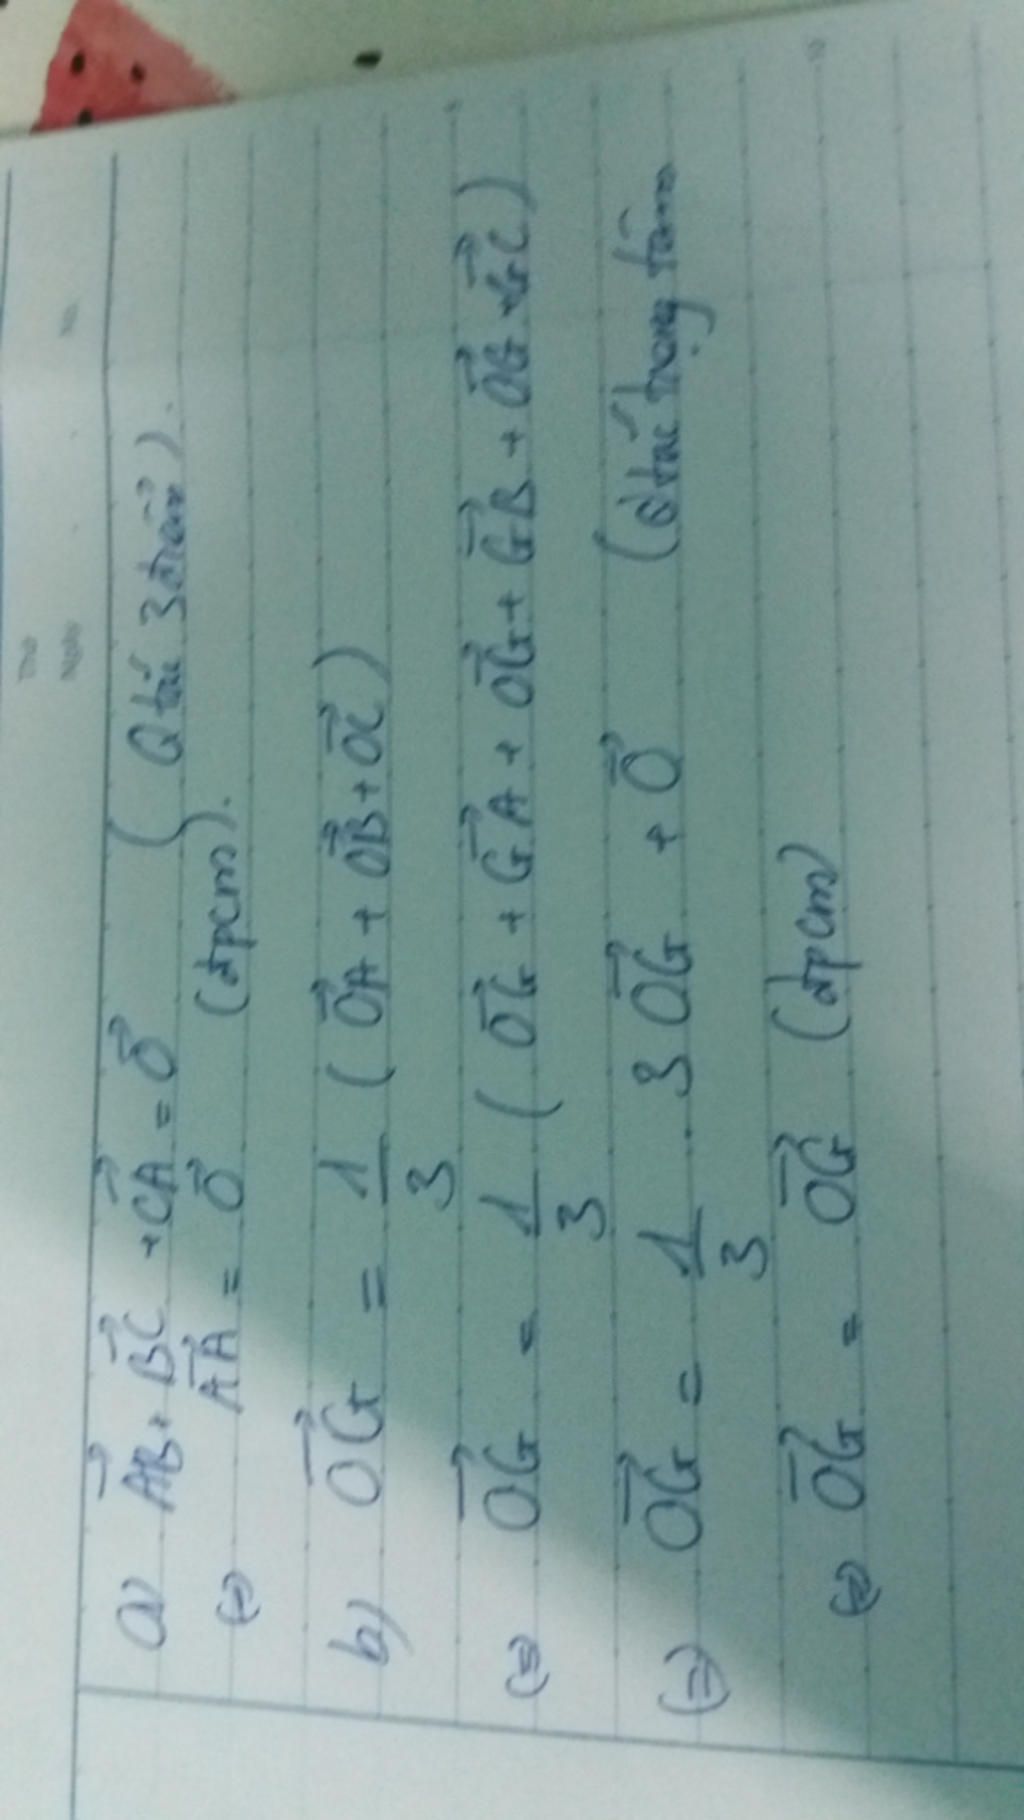 a) AB→ + BC→ + CA→ = 0→ (Q tắc 3 điểm).
(=) AA→ = 0→ (đpcm).
b) OG→ = 1/3 (OA→ + OB→ + OC→)
(=) OG→ = 1/3 (OG→ + GA→ + OG→ + GB→ + OG→ + GC→)
(=) OG→ = 1/3 . 3 OG→ + 0→ (Q tắc trọng tâm
(=) OG→ = OG→ (đpcm)